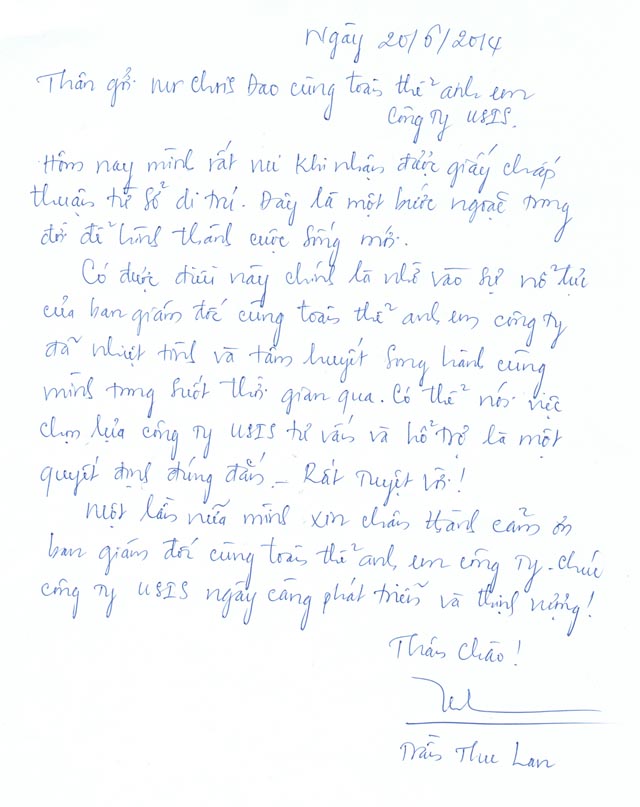 Ngày 20/6/2014
Thân gởi Mr Chris Dao cùng toàn thể anh em
công ty USIS.
Hôm nay mình rất vui khi nhận được giấy chấp
thuận từ sở di trú. Đây là một bước ngoặc trong
đời để hình thành cuộc sống mới.
Có được điều này chính là nhờ vào sự nổ lực
của ban giám đốc cùng toàn thể anh em công ty
đã nhiệt tình và tâm huyết song hành cùng
mình trong suốt thời gian qua. Có thể nói việc
chọn lựa công ty USIS tư vấn và hổ trợ là một
quyết định đúng đắn - Rất tuyệt vời!
Một lần nữa mình xin chân thành cảm ơn
ban giám đốc cùng toàn thể anh em công ty. Chúc
công ty USIS ngày càng phát triển và thịnh vượng!
Thân chào!
Trần Thu Lan